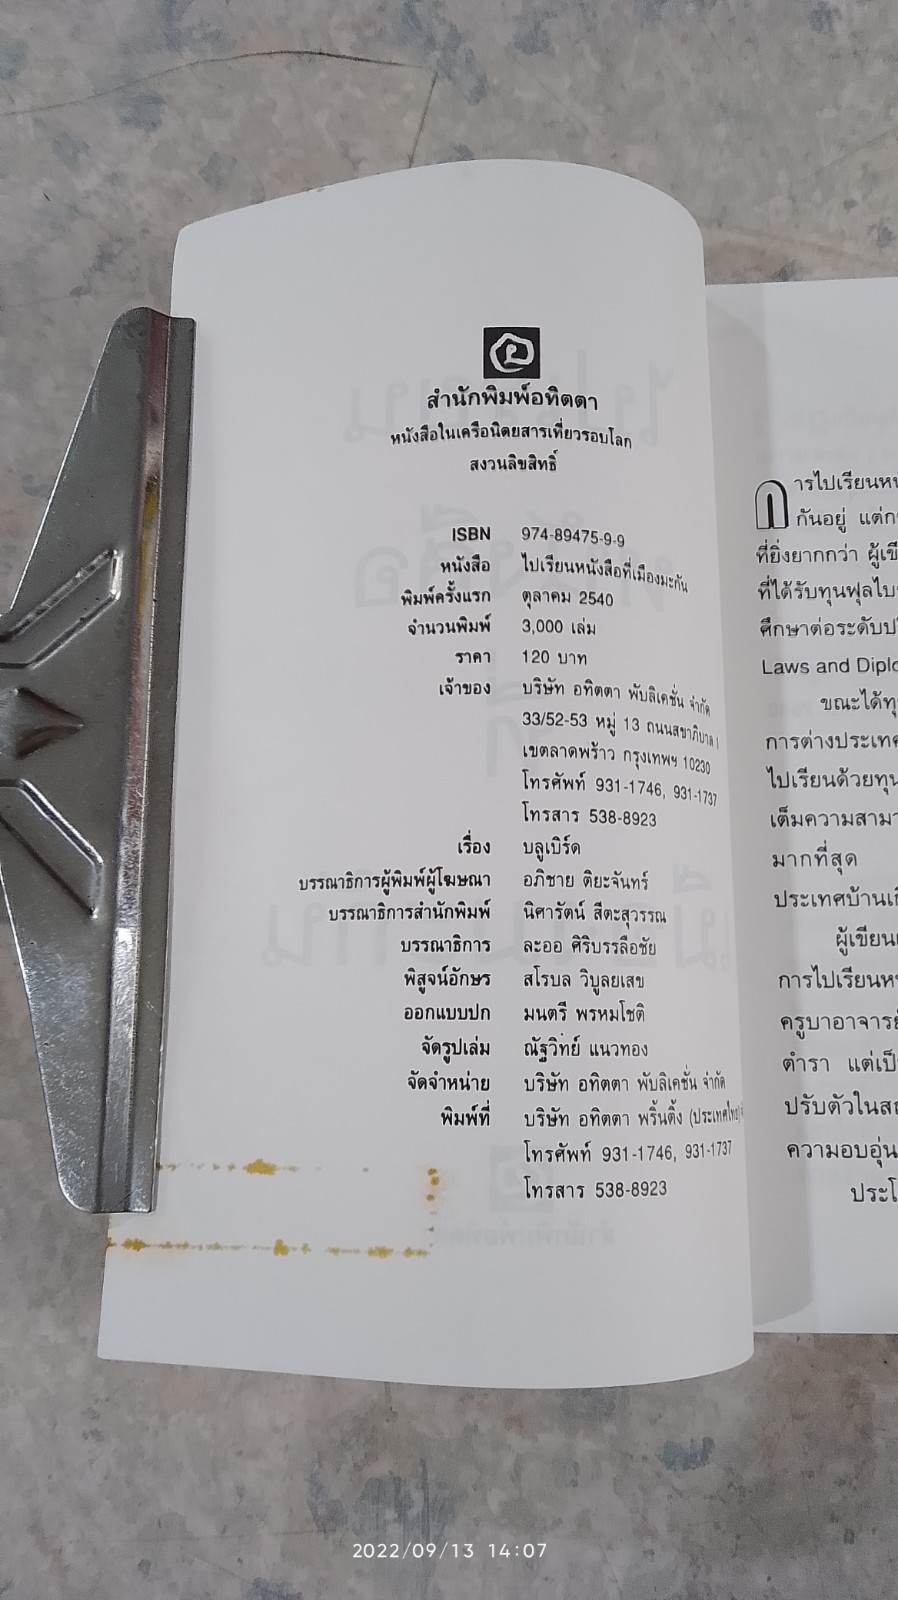 สำนักพิมพ์อทิตตา
หนังสือในเครือนิตยสารเที่ยวรอบโลก
สงวนลิขสิทธิ์
ISBN 974-89475-9-9
หนังสือ ไปเรียนหนังสือที่เมืองมะกัน
พิมพ์ครั้งแรก ตุลาคม 2540
จำนวนพิมพ์ 3,000 เล่ม
ราคา 120 บาท
เจ้าของ บริษัท อทิตตา พับลิเคชั่น จำกัด
33/52-53 หมู่ 13 ถนนสุขาภิบาล 1
เขตลาดพร้าว กรุงเทพฯ 10230
โทรศัพท์ 931-1746, 931-1737
โทรสาร 538-8923
เรื่อง บลูเบิร์ด
บรรณาธิการผู้พิมพ์ผู้โฆษณา อภิชาย ติยะจันทร์
บรรณาธิการสำนักพิมพ์ นิศารัตน์ สีตะสุวรรณ
บรรณาธิการ ละออ ศิริบรรลือชัย
พิสูจน์อักษร สโรบล วิบูลยเสข
ออกแบบปก มนตรี พรหมโชติ
จัดรูปเล่ม ณัฐวิทย์ แนวทอง
จัดจำหน่าย บริษัท อทิตตา พับลิเคชั่น จำกัด
พิมพ์ที่ บริษัท อทิตตา พริ้นติ้ง (ประเทศไทย)
โทรศัพท์ 931-1746, 931-1737
โทรสาร 538-8923
การไปเรียนหน
กันอยู่ แต่ก
ที่ยิ่งยากกว่า ผู้เขี
ที่ได้รับทุนฟุลไบ
ศึกษาต่อระดับป
Laws and Diplo
ขณะได้ทุ
การต่างประเทศ
ไปเรียนด้วยทุน
เต็มความสามา
มากที่สุด
ประเทศบ้านเกิ
ผู้เขียน
การไปเรียนห
ครูบาอาจารย์
ตำรา แต่เป็
ปรับตัวในส
ความอบอุ่น
ประโ
2022/09/13 14:07